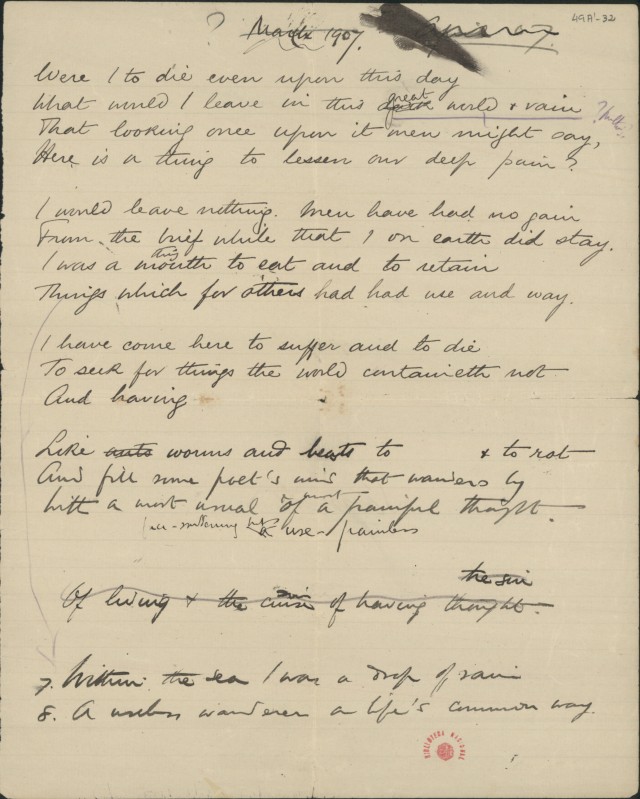 ? March 1907.
49A¹-32
Were I to die even upon this day
What would I leave in this great world & vain
That looking once upon it men might say,
Here is a thing to lessen our deep pain?
I would leave nothing. Men have had no gain
From the brief while that I on earth did stay.
I was a mouth to eat and to retain
Things which for others had had use and way.
I have come here to suffer and to die
To seek for things the world containeth not
And having
Like ants worms and beasts to & to rot
And fill some poet's mind that wanders by
With a most usual & most painful thought.
use - painless
the sin
Of living & the curse of having thought.
7. Within the sea I was a drop of rain
8. A useless wanderer on life's common way.
BIBLIOTECA NACIONAL